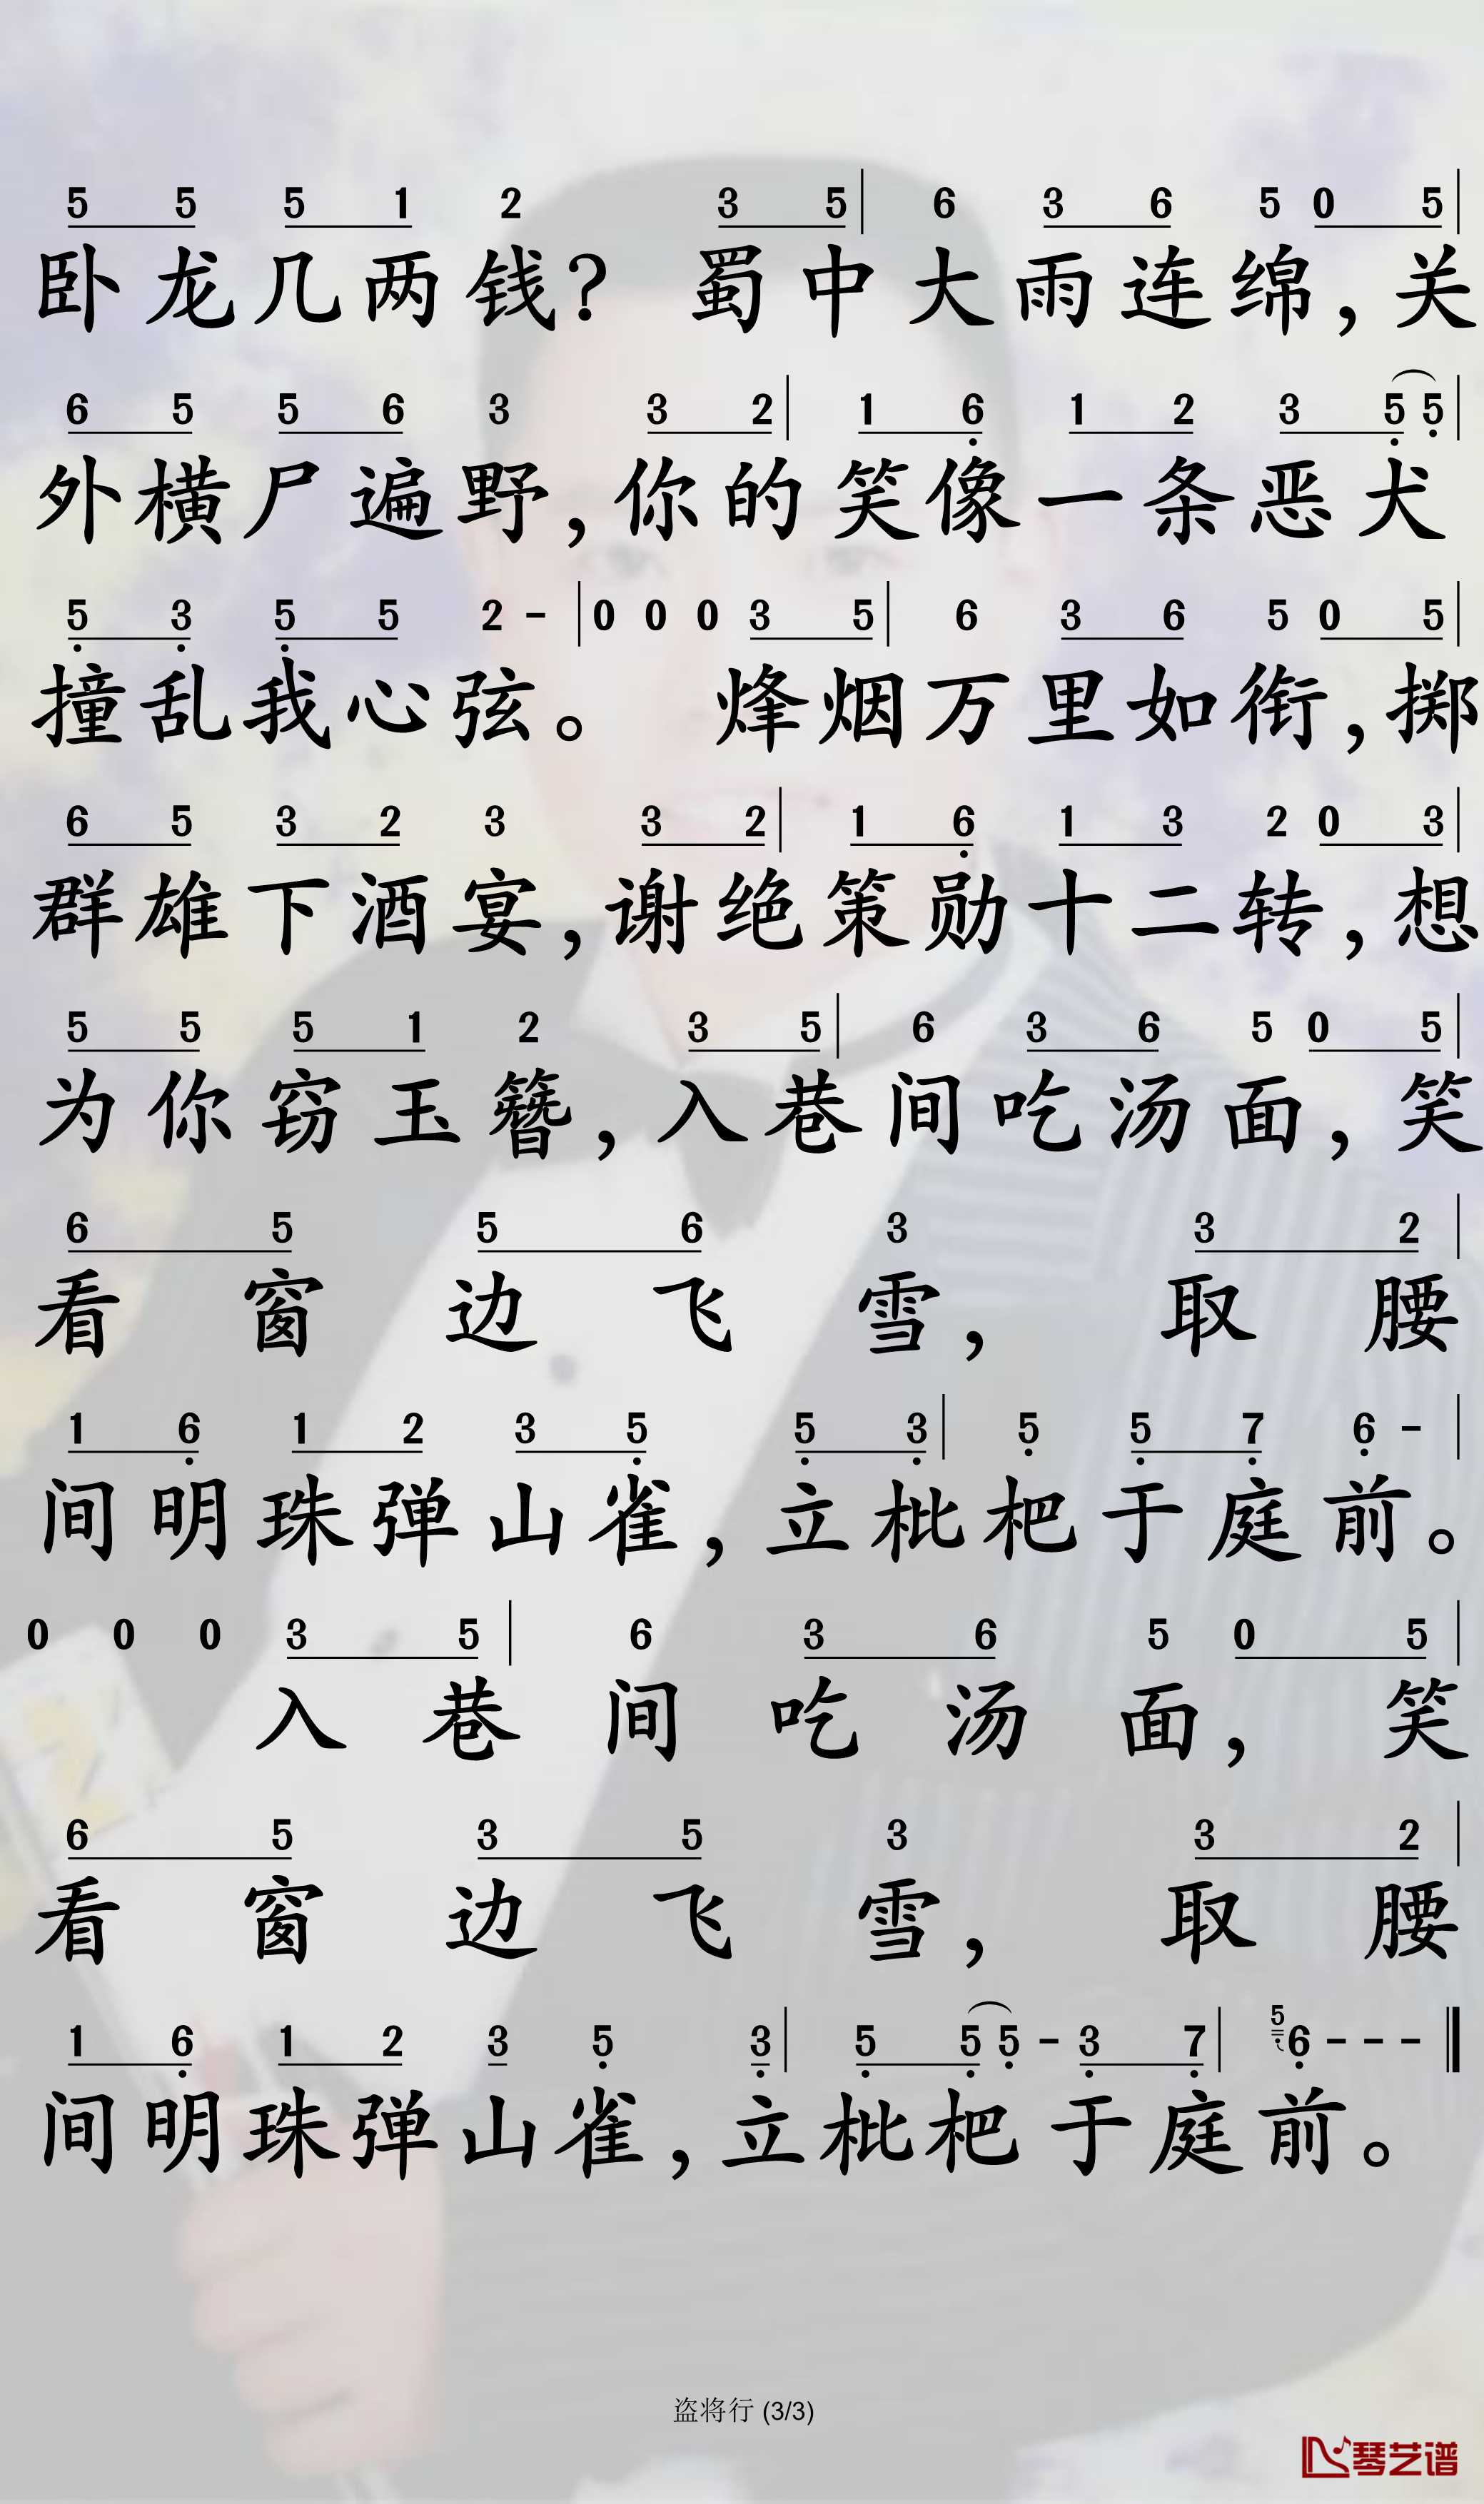 5 5 5 1 2 3 5 | 6 3 6 5 0 5 |
卧龙几两钱？ 蜀中大雨连绵，关
6 5 5 6 3 3 2 | 1 6 1 2 3 5 5 |
外横尸遍野，你的笑像一条恶犬
5 3 5 5 2 - | 0 0 0 3 5 | 6 3 6 5 0 5 |
撞乱我心弦。 烽烟万里如衔，掷
6 5 3 2 3 3 2 | 1 6 1 3 2 0 3 |
群雄下酒宴，谢绝策勋十二转，想
5 5 5 1 2 3 5 | 6 3 6 5 0 5 |
为你窃玉簪，入巷间吃汤面，笑
6 5 5 6 3 3 2 |
看窗边飞雪，取腰
1 6 1 2 3 5 5 3 | 5 5 7 6 - |
间明珠弹山雀，立枇杷于庭前。
0 0 0 3 5 | 6 3 6 5 0 5 |
入巷间吃汤面，笑
6 5 3 5 3 3 2 |
看窗边飞雪，取腰
1 6 1 2 3 5 3 | 5 5 5 - 3 7 | 5 6 - - -
间明珠弹山雀，立枇杷于庭前。
盗将行 (3/3)
琴艺谱